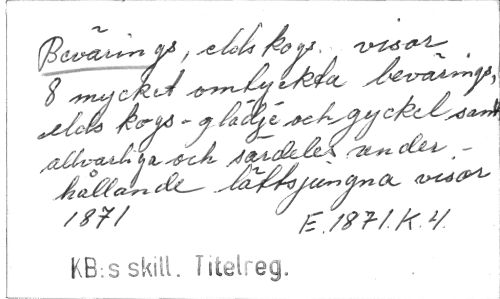 Bevärings, elds kogs. visor
8 mycket omtyckta bevärings,
elds kogs-glädje och gyckel samt
allvarliga och särdeles under-
hållande lättsjungna visor
1871 E.1871.K.4.
KB:s skill. Titelreg.